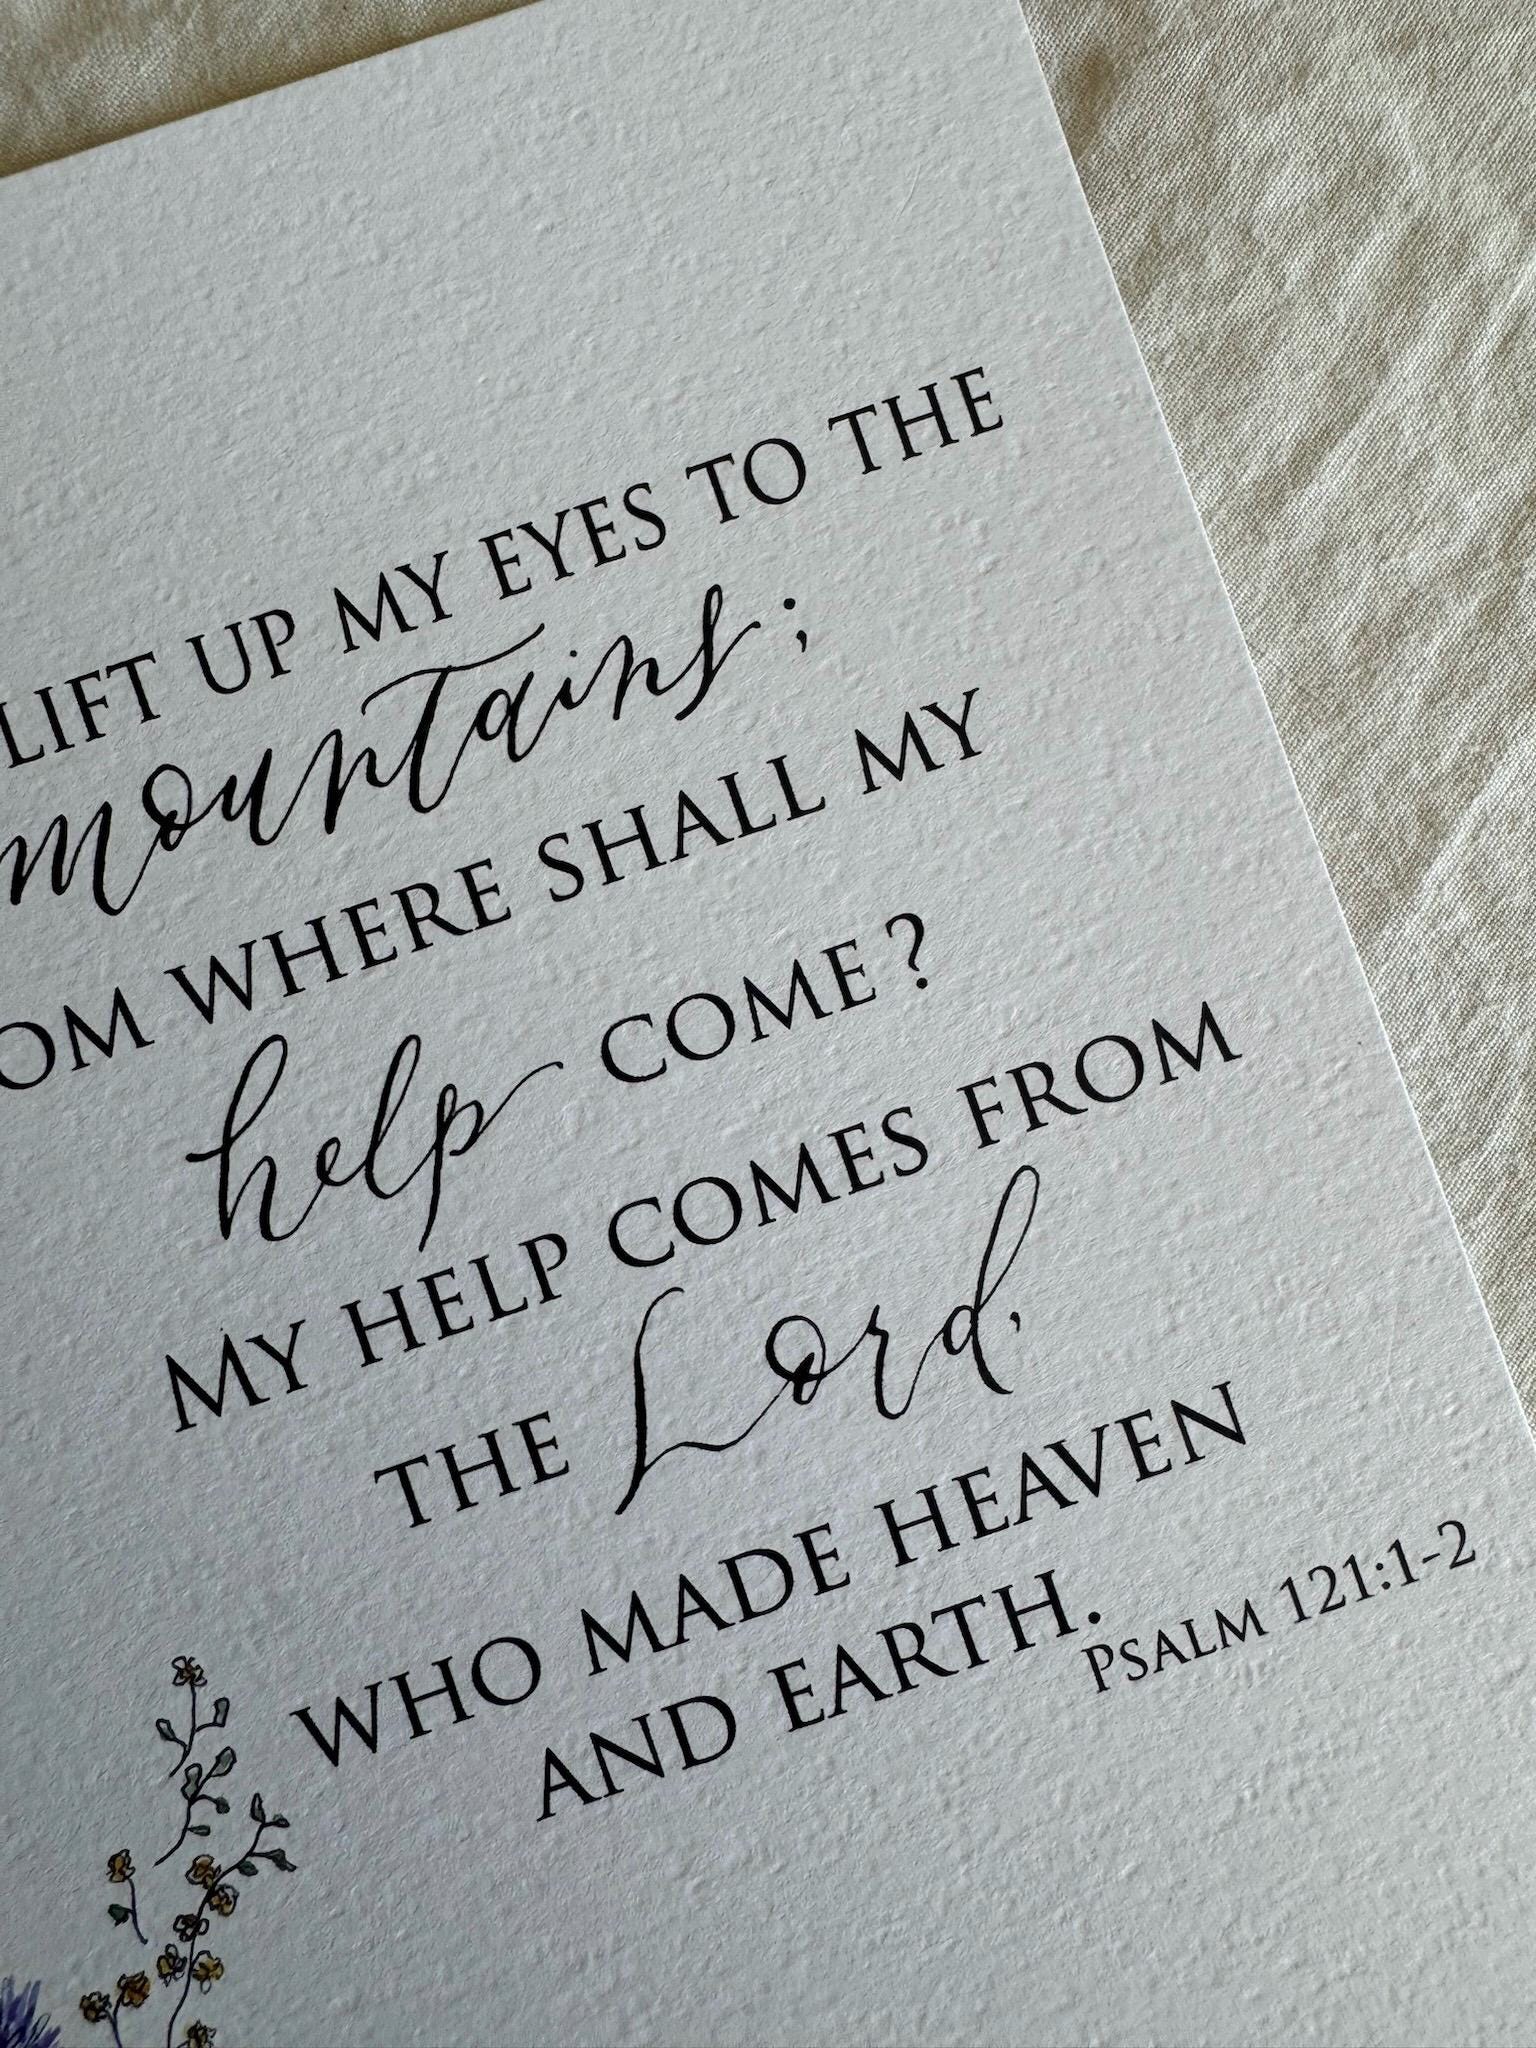 LIFT UP MY EYES TO THE
mountains;
OM WHERE SHALL MY
help COME?
MY HELP COMES FROM
THE Lord,
WHO MADE HEAVEN
AND EARTH.
PSALM 121:1-2